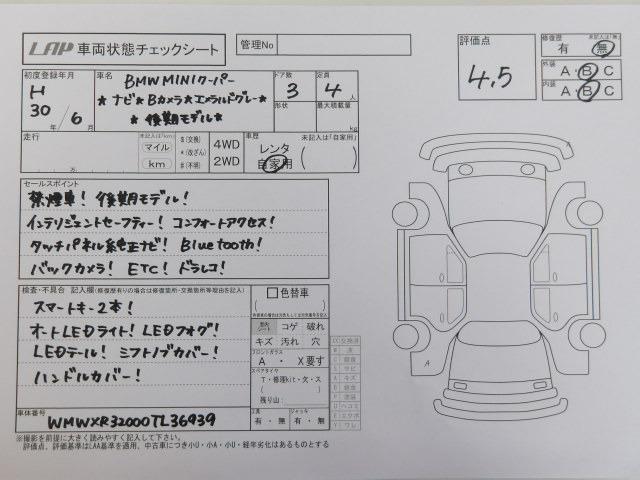 LAP 車両状態チェックシート
管理No
評価点
4.5
修復歴 未記入は「無」
有・無
外装 A・B C
内装 A・B C
初度登録年月
H
30年/6月
車名
BMW MINIクーパー
★ナビ★Bカメラ★エメラルドグレー★
★後期モデル★
ドア数
3
定員
4人
形状
最大積載量
kg
走行
万
未記入は「km」
マイル
km
$(交換)
*(改ざん)
#(不明)
4WD
2WD
車歴 未記入は「自家用」
レンタ
自家用
セールスポイント
禁煙車! 後期モデル!
インテリジェントセーフティー! コンフォートアクセス!
タッチパネル純正ナビ! Bluetooth!
バックカメラ! ETC! ドラレコ!
検査・不具合 記入欄(修復歴有りの場合は修復箇所・交換箇所等理由を記入)
スマートキー2本!
オートLEDライト! LEDフォグ!
LEDテール! シフトノブカバー!
ハンドルカバー!
色替車
内装 コゲ 破れ
キズ 汚れ 穴
フロントガラス
A ・ X要す
スペアタイヤ
T・修理kit・欠・ス
残り山:
工具
有・無
ジャッキ
有・無
車体番号
WMWXR32000TL36939
A
A
※撮影を前提に大きく読みやすく記入して下さい。
評価点、評価基準はLAA基準を適用、中古車につき小U・小A・小U・経年劣化はあるものとする